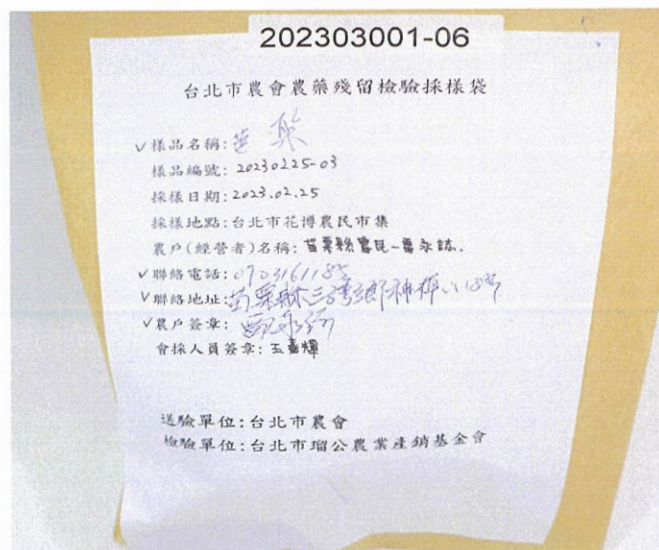 202303001-06
台北市農會農藥殘留檢驗採樣袋
✓樣品名稱:
樣品編號: 20230225-03
採樣日期: 2023.02.25
採樣地點:台北市花博農民市集
農戶(經營者)名稱: 苗栗縣農民-
✓聯絡電話:
✓聯絡地址: 苗栗縣三灣鄉
✓農戶簽章:
會採人員簽章:
送驗單位:台北市農會
檢驗單位:台北市瑠公農業產銷基金會